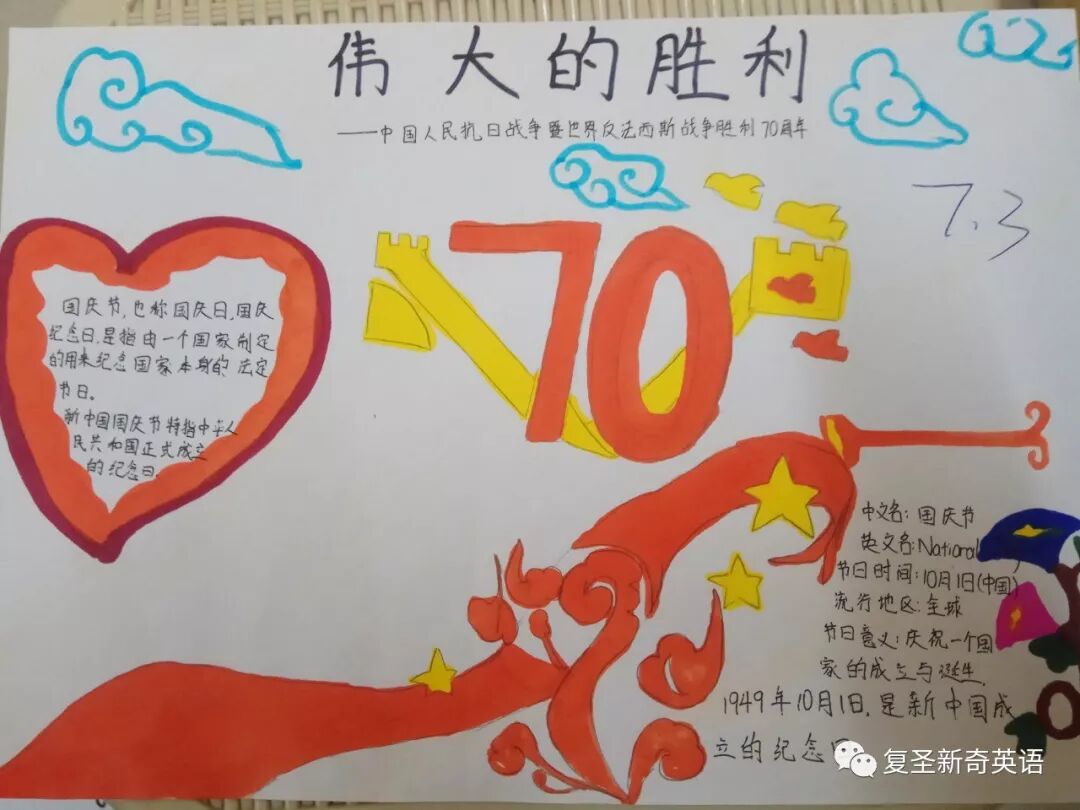 伟大的胜利
——中国人民抗日战争暨世界反法西斯战争胜利70周年
7.3
70
国庆节,也称国庆日,国庆
纪念日,是指由一个国家制定
的用来纪念国家本身的法定
节日。
新中国国庆节特指中华人
民共和国正式成立
的纪念日。
中文名:国庆节
英文名:National
节日时间:10月1日(中国)
流行地区:全球
节日意义:庆祝一个国
家的成立与诞生.
1949年10月1日,是新中国成
立的纪念日
复圣新奇英语